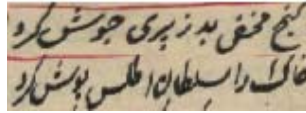 گنج مخفی بد ز پری جوش کرد
خاک را سلطان اطلس پوش کرد